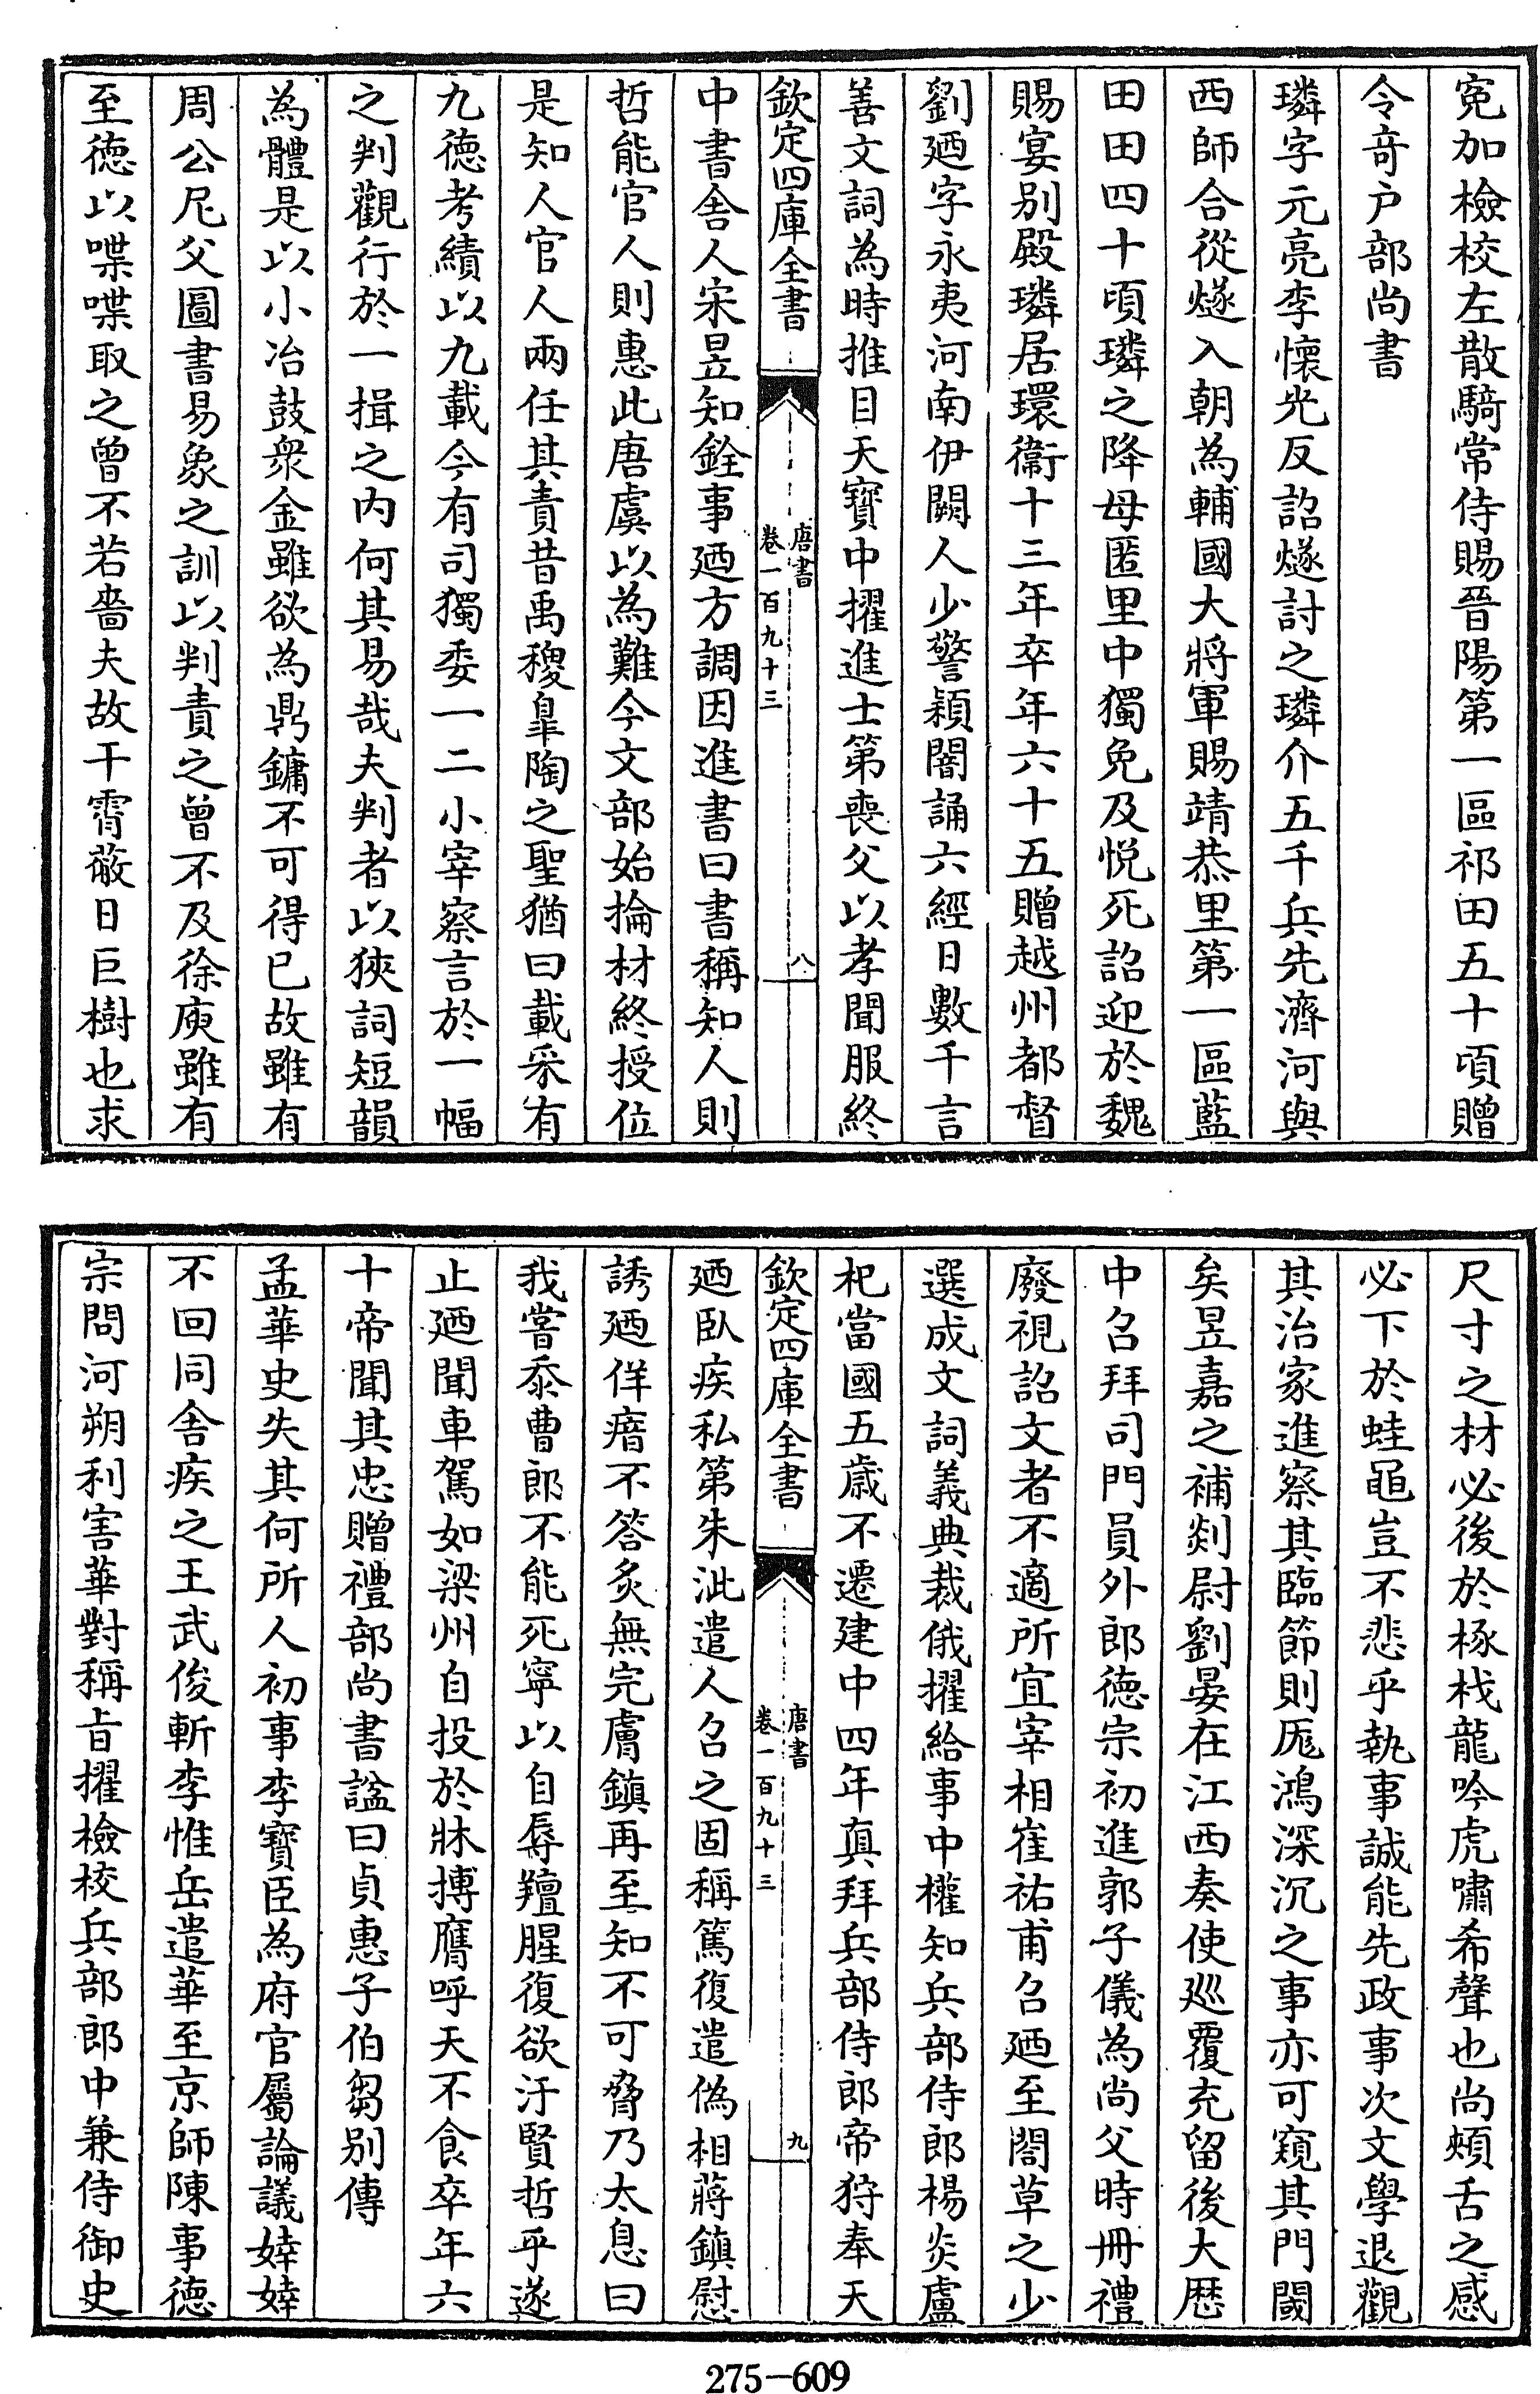 寃加檢校左散騎常侍賜晉陽第一區祁田五十頃贈
令竒户部尚書
璘字元亮李懷光反詔燧討之璘介五千兵先濟河與
西師合從燧入朝為輔國大將軍賜靖恭里第一區藍
田田四十頃璘之降母匿里中獨免及悦死詔迎於魏
賜宴别殿璘居環衛十三年卒年六十五贈越州都督
劉廼字永夷河南伊闕人少警穎闇誦六經日數千言
善文詞為時推目天寶中擢進士第喪父以孝聞服終
欽定四庫全書
唐書
卷一百九十三
八
中書舎人宋昱知銓事廼方調因進書曰書稱知人則
哲能官人則惠此唐虞以為難今文部始掄材終授位
是知人官人兩任其責昔禹稷臯陶之聖猶曰載采有
九德考績以九載今有司獨委一二小宰察言於一幅
之判觀行於一揖之内何其易哉夫判者以狹詞短韻
為體是以小冶鼓衆金雖欲為鼎鏞不可得已故雖有
周公尼父圖書易象之訓以判責之曾不及徐庾雖有
至徳以喋喋取之曾不若嗇夫故干霄蔽日巨樹也求
尺寸之材必後於椓杙龍吟虎嘯希聲也尚頰舌之感
必下於蛙黽豈不悲乎執事誠能先政事次文學退觀
其治家進察其臨節則厖鴻深沉之事亦可窺其門閾
矣昱嘉之補剡尉劉晏在江西奏使巡覆充留後大厯
中召拜司門員外郎徳宗初進郭子儀為尚父時冊禮
廢視詔文者不適所宜宰相崔祐甫召廼至閤草之少
選成文詞義典裁俄擢給事中權知兵部侍郎楊炎盧
杞當國五歳不遷建中四年真拜兵部侍郎帝狩奉天
欽定四庫全書
唐書
卷一百九十三
九
廼臥疾私第朱泚遣人召之固稱篤復遣偽相蔣鎮慰
誘廼佯瘖不答炙無完膚鎮再至知不可脅乃太息曰
我嘗忝曹郎不能死寧以自辱羶腥復欲汙賢哲乎遂
止廼聞車駕如梁州自投於牀搏膺呼天不食卒年六
十帝聞其忠贈禮部尚書諡曰貞惠子伯芻别傳
孟華史失其何所人初事李寶臣為府官屬論議婞婞
不回同舎疾之王武俊斬李惟岳遣華至京師陳事徳
宗問河朔利害華對稱㫖擢檢校兵部郎中兼侍御史
275-609